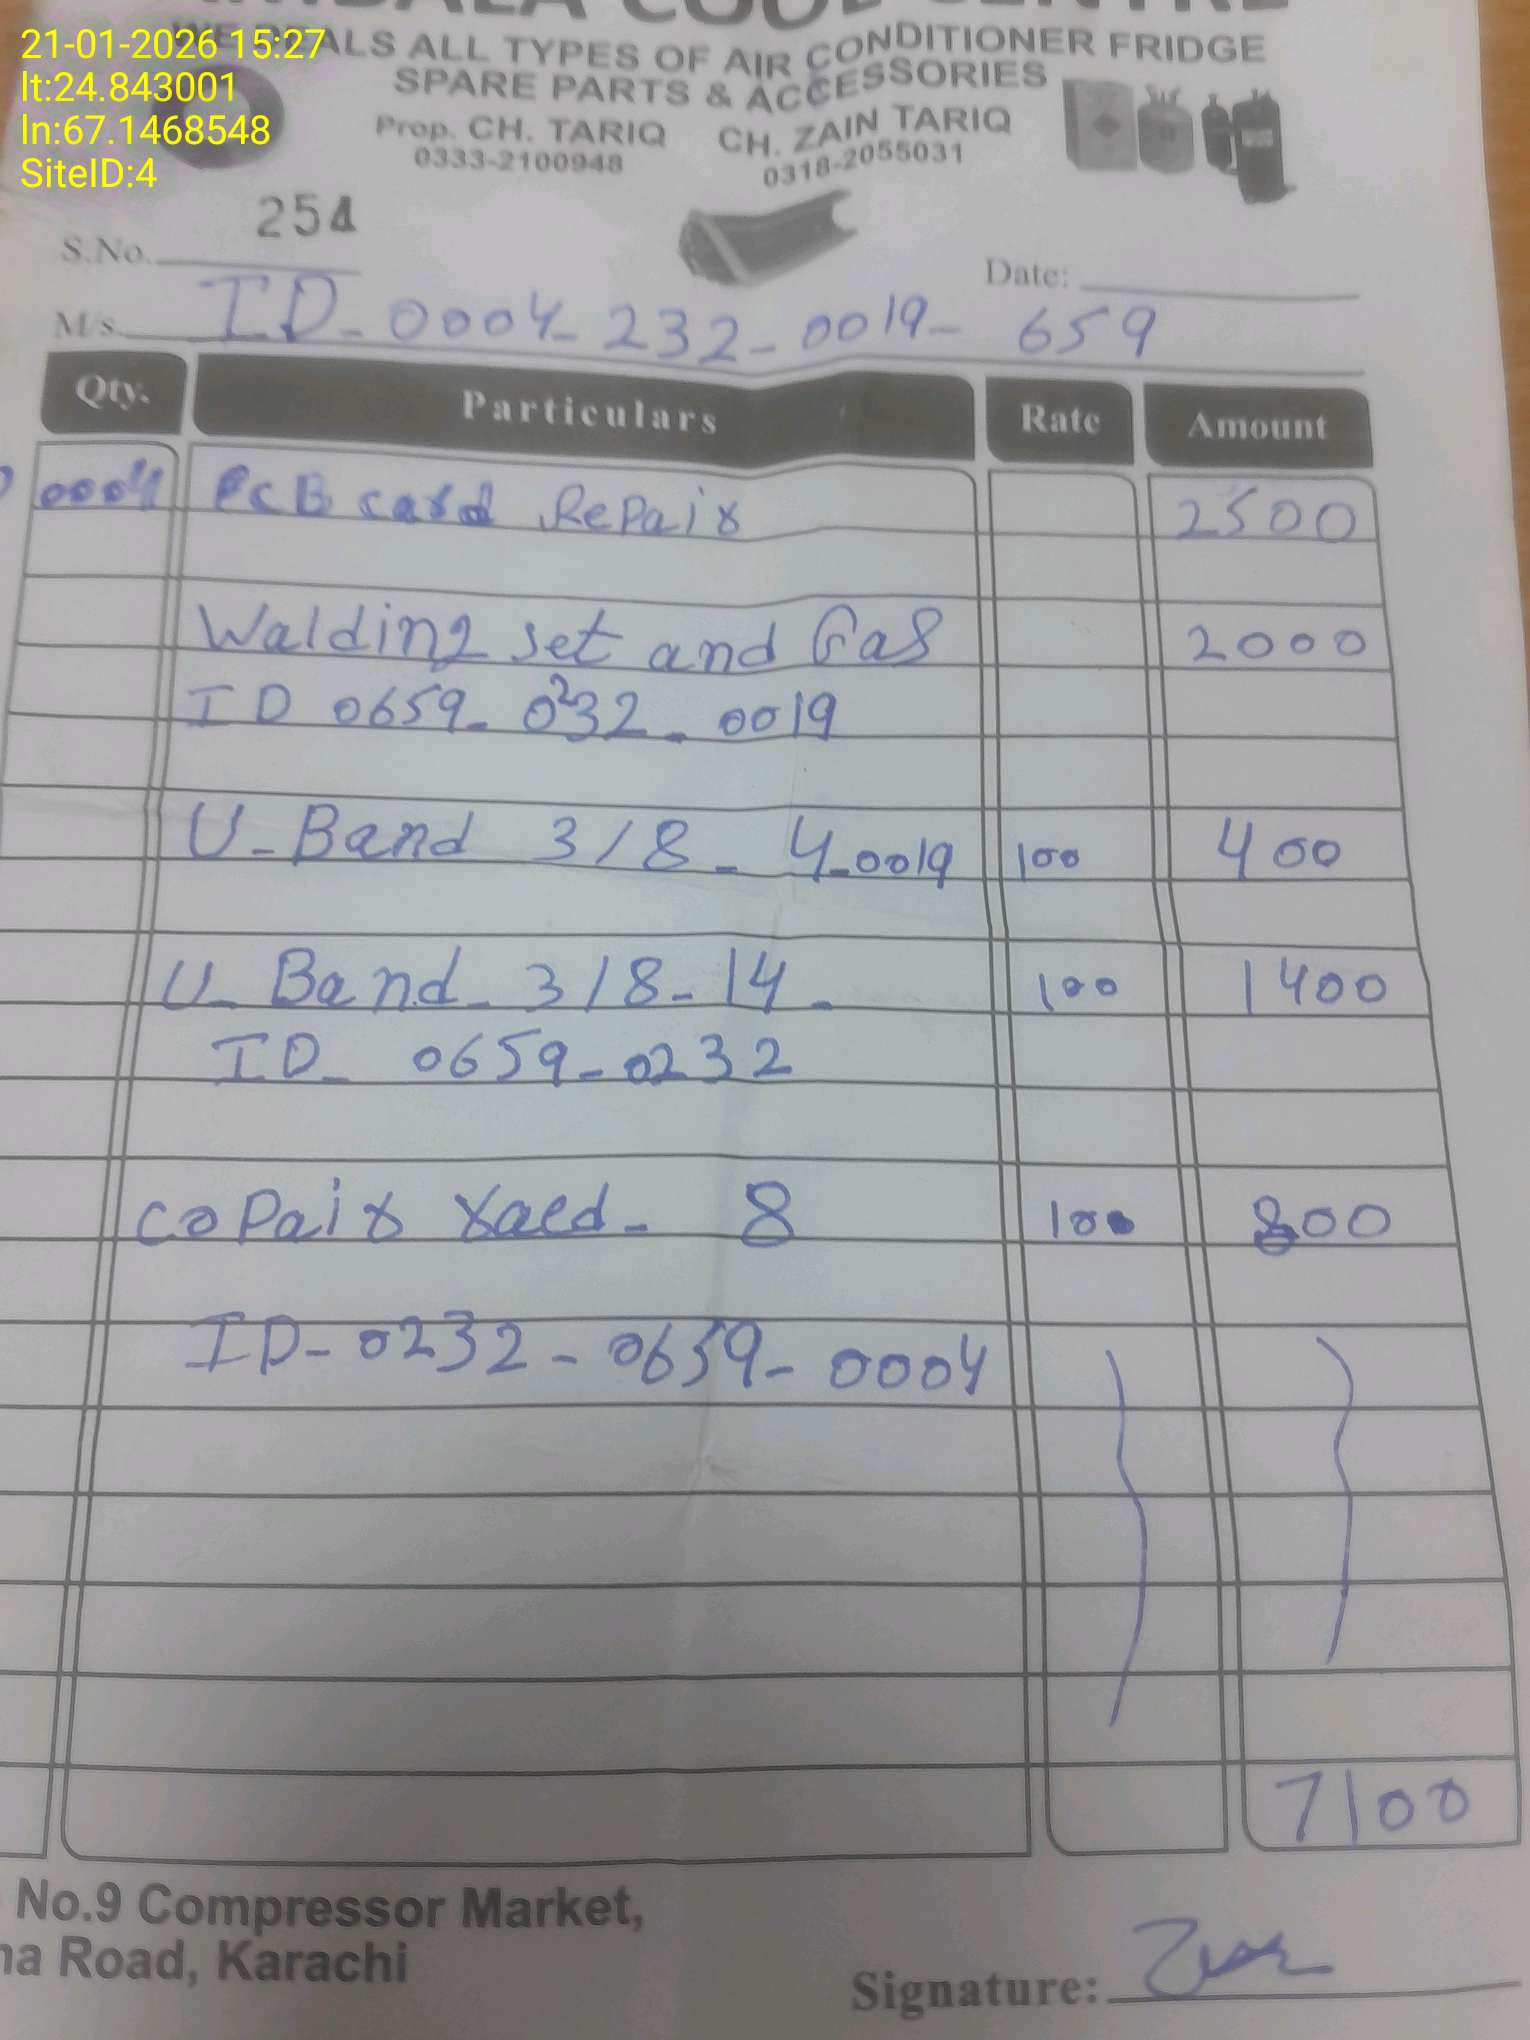 21-01-2026 15:27
lt:24.843001
ln:67.1468548
SiteID:4
COOL CENTRE
ALL TYPES OF AIR CONDITIONER FRIDGE
SPARE PARTS & ACCESSORIES
Prop. CH. TARIQ CH. ZAIN TARIQ
0333-2100948 0318-2055031
S.No. 254
Date:
M/s. ID-0004-232-0019-659
Qty. Particulars Rate Amount
0004 PCB card Repair 2500
Walding set and Gas 2000
ID 0659-0232-0019
U-Band 3/8-4-0019 100 400
U-Band-3/8-14- 100 1400
ID-0659-0232
coPair Xaed-8 100 800
ID-0232-0659-0004
7100
No.9 Compressor Market,
Road, Karachi
Signature: